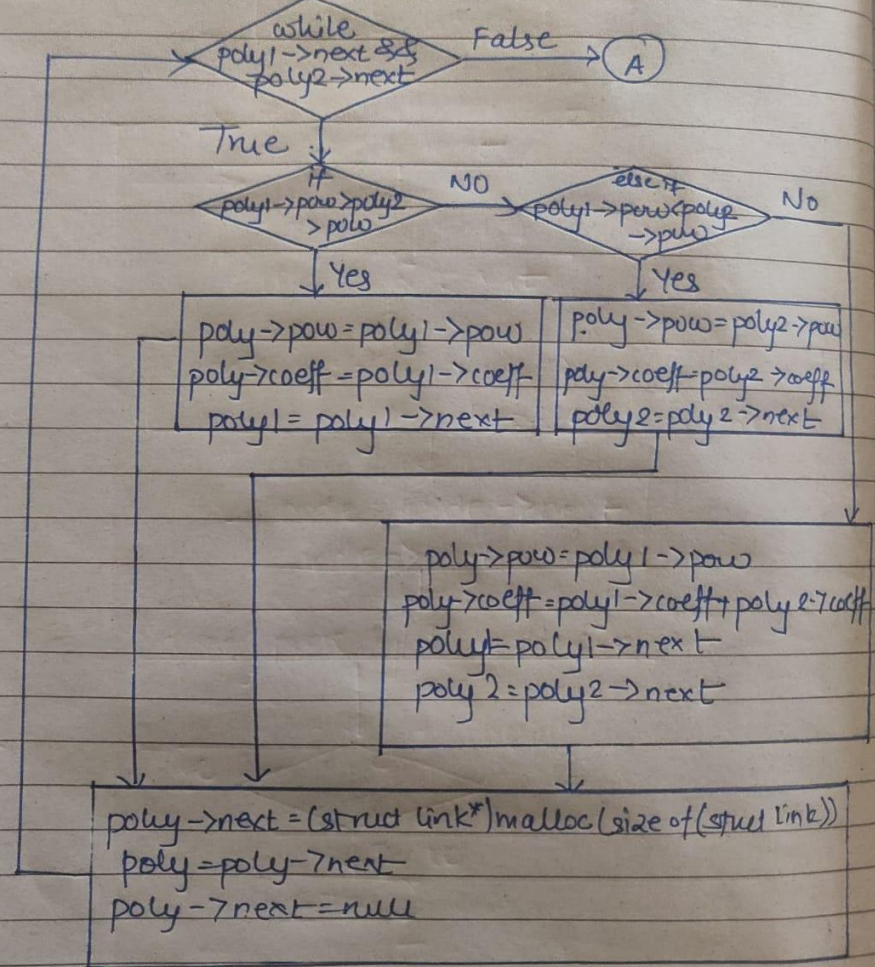 while
poly1->next &&
poly2->next
False
A
True
if
poly1->pow>poly2
>pow
NO
else if
poly1->pow<poly2
->pow
No
Yes
Yes
poly->pow=poly1->pow
poly->coeff=poly1->coeff
poly1=poly1->next
poly->pow=poly2->pow
poly->coeff=poly2->coeff
poly2=poly2->next
poly->pow=poly1->pow
poly->coeff=poly1->coeff+poly2->coeff
poly1=poly1->next
poly2=poly2->next
poly->next=(struct link*)malloc(size of(struct link))
poly=poly->next
poly->next=null